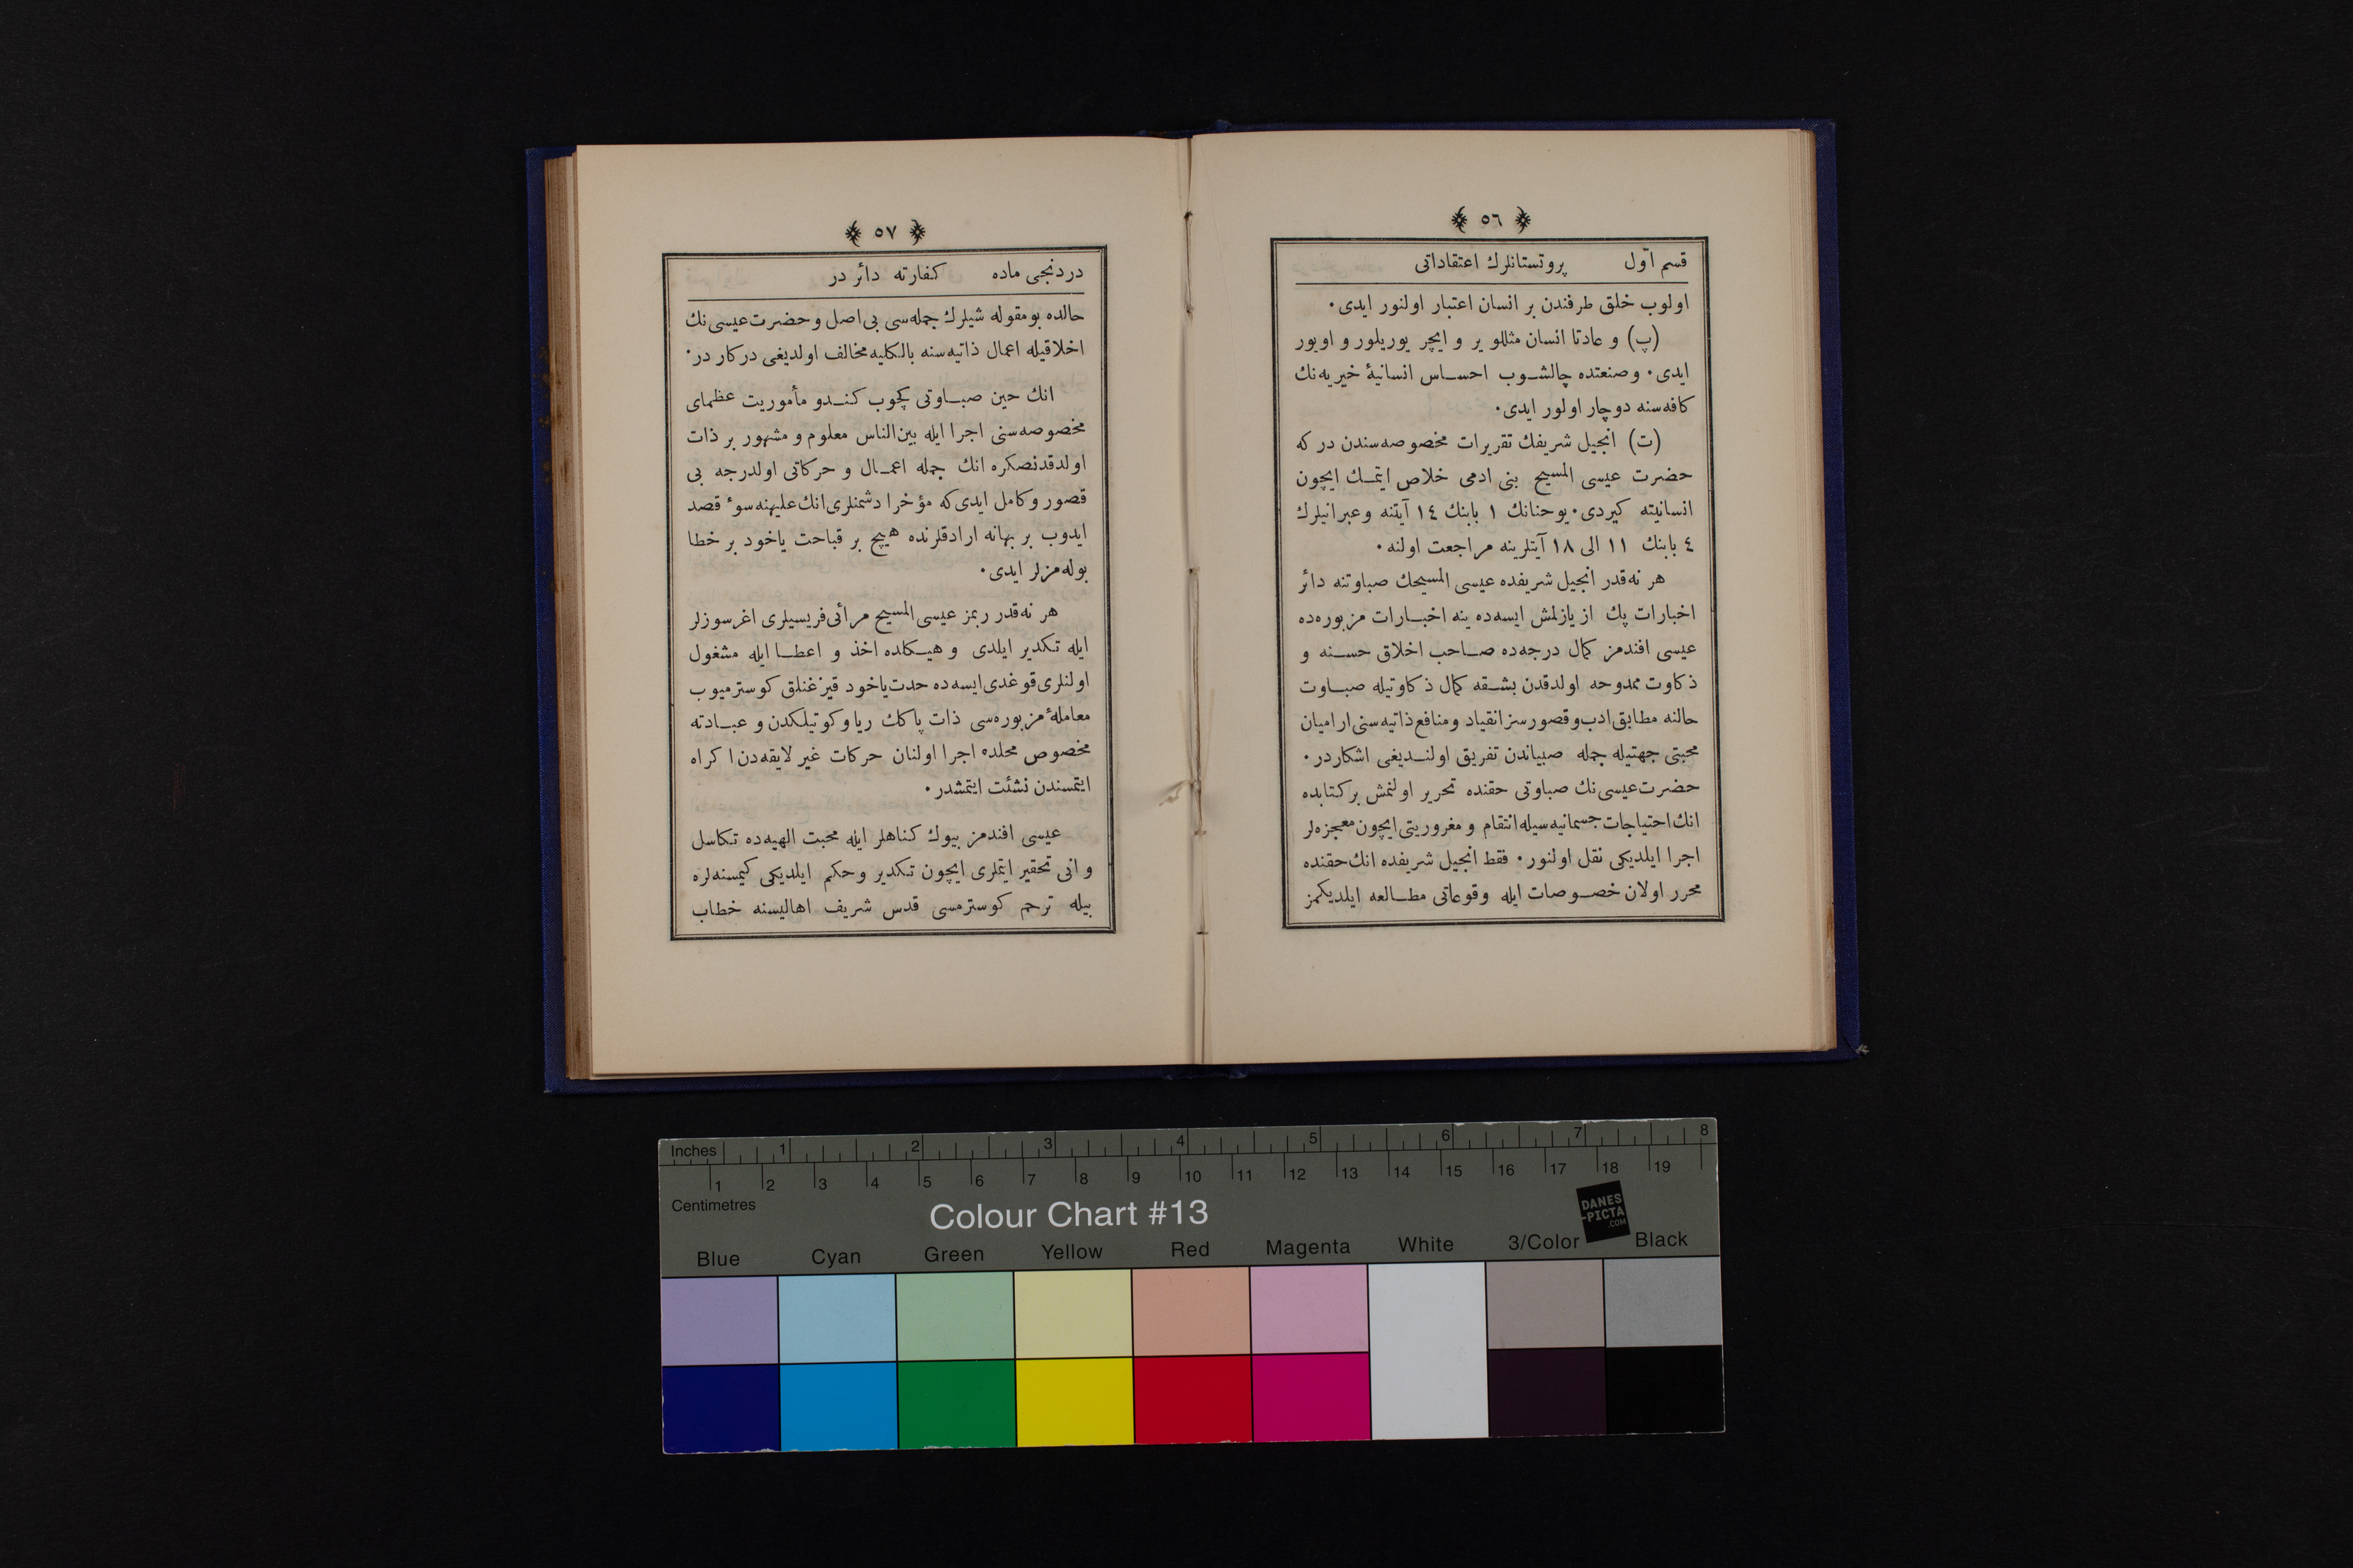 ٥٦
قسم اوّل پروتستانلرك اعتقاداتی
اولوب خلق طرفندن بر انسان اعتبار اولنور ایدی.
(پ) و عادتا انسان مثللو یر و ایچر یوریلور و اویور
ایدی. وصنعتده چالشوب احساس انسانیهٔ خیریه‌نك
كافه‌سنه دوچار اولور ایدی.
(ت) انجیل شریفك تقریرات مخصوصه‌سندن در كه
حضرت عیسی المسیح بنی ادمی خلاص ایتمك ایچون
انسانیته كیردی. یوحنانك ١ بابنك ١٤ آیتنه وعبرانیلرك
٤ بابنك ١١ الی ١٨ آیتلرینه مراجعت اولنه.
هر نه‌قدر انجیل شریفده عیسی المسیحك صباوتنه دائر
اخبارات پك از یازلمش ایسه‌ده ینه اخبارات مزبوره‌ده
عیسی افندمز كمال درجه‌ده صاحب اخلاق حسنه و
ذكاوت ممدوحه اولدقدن بشقه كمال ذكاوتیله صباوت
حالنه مطابق ادب وقصورسز انقیاد ومنافع ذاتیه‌سنی ارامیان
محبتی جهتیله جمله صبیاندن تفریق اولندیغی اشكاردر.
حضرت عیسی‌نك صباوتی حقنده تحریر اولنمش بركتابده
انك احتیاجات جسمانیه‌سیله انتقام و مغروریتی ایچون معجزه‌لر
اجرا ایلدیكی نقل اولنور. فقط انجیل شریفده انك حقنده
محرر اولان خصوصات ایله وقوعاتی مطالعه ایلدیكمز
٥٧
دردنجی ماده كفارته دائر در
حالده بومقوله شیلرك جمله‌سی بی اصل وحضرت عیسی‌نك
اخلاقیله اعمال ذاتیه‌سنه بالكلیه مخالف اولدیغی دركار در.
انك حین صباوتی كچوب كندو مأموریت عظمای
مخصوصه‌سنی اجرا ایله بین‌الناس معلوم و مشهور بر ذات
اولدقدنصكره انك جمله اعمال و حركاتی اولدرجه بی
قصور وكامل ایدی‌كه مؤخرا دشمنلری انك علیهنه سوٴ قصد
ایدوب بر بهانه ارادقلرنده هیچ بر قباحت یاخود بر خطا
بوله‌مزلر ایدی.
هر نه‌قدر ربمز عیسی المسیح مرائی فریسیلری اغر سوزلر
ایله تكدیر ایلدی و هیكلده اخذ و اعطا ایله مشغول
اولنلری قوغدی ایسه‌ده حدت یاخود قیزغنلق كوسترمیوب
معاملهٔ مزبوره‌سی ذات پاكك ریا وكوتیلكدن و عبادته
مخصوص محلده اجرا اولنان حركات غیر لایقه‌دن اكراه
ایتمسندن نشئت ایتمشدر.
عیسی افندمز بیوك كناهلر ایله محبت الهیه‌ده تكاسل
و انی تحقیر ایتملری ایچون تكدیر وحكم ایلدیكی كیمسنه‌لره
بیله ترحم كوسترمسی قدس شریف اهالیسنه خطاب
Inches 1 2 3 4 5 6 7 8
1 2 3 4 5 6 7 8 9 10 11 12 13 14 15 16 17 18 19
Centimetres
Colour Chart #13
DANES
-PICTA
.COM
Blue Cyan Green Yellow Red Magenta White 3/Color Black